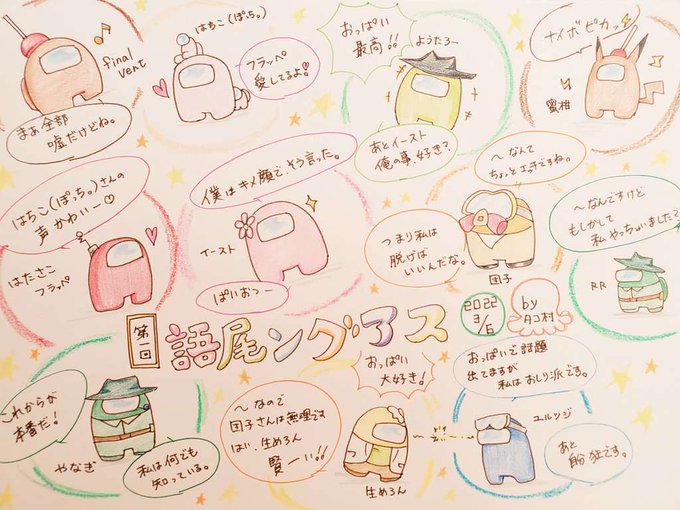 final
vent
まぁ全部
嘘だけどね。
はちこ(ぽっち。)
フラッペ
愛してるよ!
おっぱい
最高!!
ようたろー
あとイースト
俺の事、好き?
ナイボピカッ
蜜柑
はちこ(ぽっち。)さんの
声かわいー♡
はたさこ
フラッペ
僕はキメ顔で、そう言った。
イースト
ぱいおつー
〜なんて
ちょっとエッチですね。
つまり私は
脱げば
いいんだな。
団子
〜なんですけど
もしかして
私やっちゃいました?
RR
第一回
語尾ングアス
2022
3/6
by
タコ村
これからが
本番だ!
やなぎ
私は何でも
知っている。
〜なので
団子さんは無理です
はい、生めろん
賢ーい!!
おっぱい
大好き!
生めろん
おっぱいで話題
出てますが
私はおしり派です。
ユルツジ
あと
船狂です。